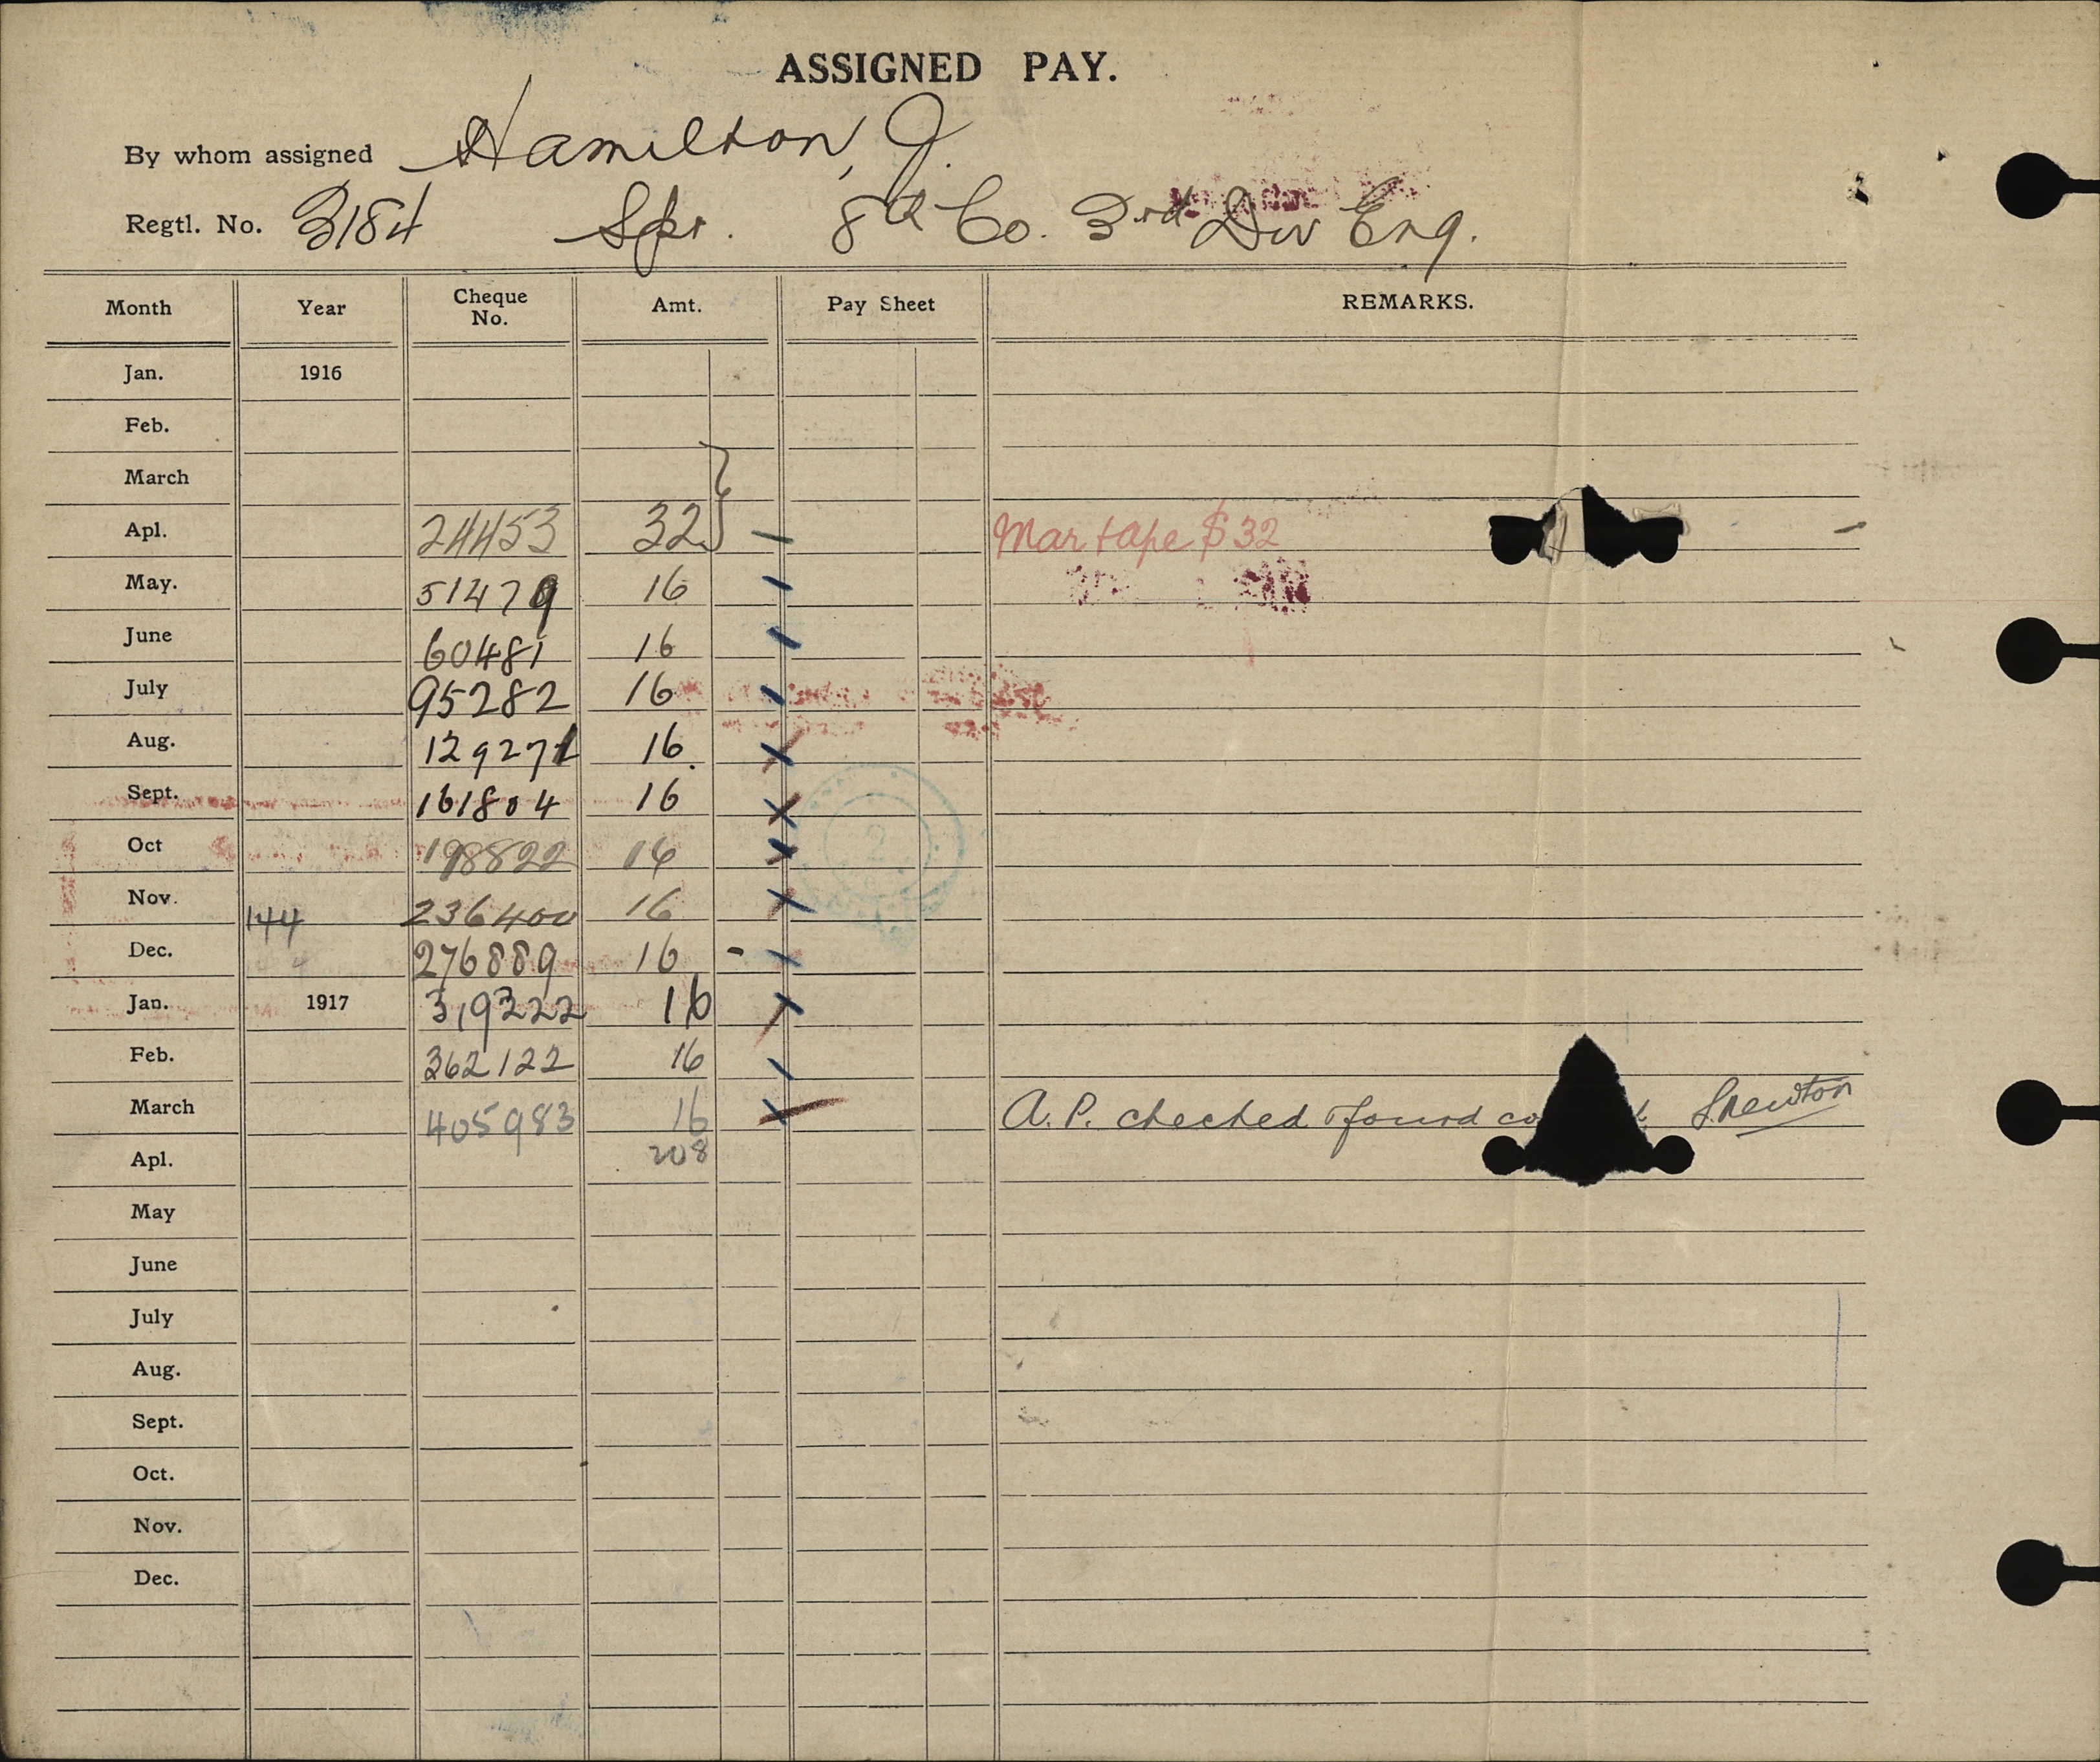 ASSIGNED PAY.
By whom assigned Hamilton, J.
Regtl. No. 3184 Spr. 8th Co. 3rd Div Eng.
Month Year Cheque No. Amt. Pay Sheet REMARKS.
Jan. 1916
Feb.
March
Apl. 24453 32 Mar + ape $32
May. 51479 16
June 60481 16
July 95282 16
Aug. 129271 16.
Sept. 161804 16
Oct 198822 16
Nov. 144 236400 16
Dec. 276889 16 -
Jan. 1917 319322 16
Feb. 362122 16
March 405983 16 A. P. checked & found S. Newton
Apl. 208
May
June
July
Aug.
Sept.
Oct.
Nov.
Dec.